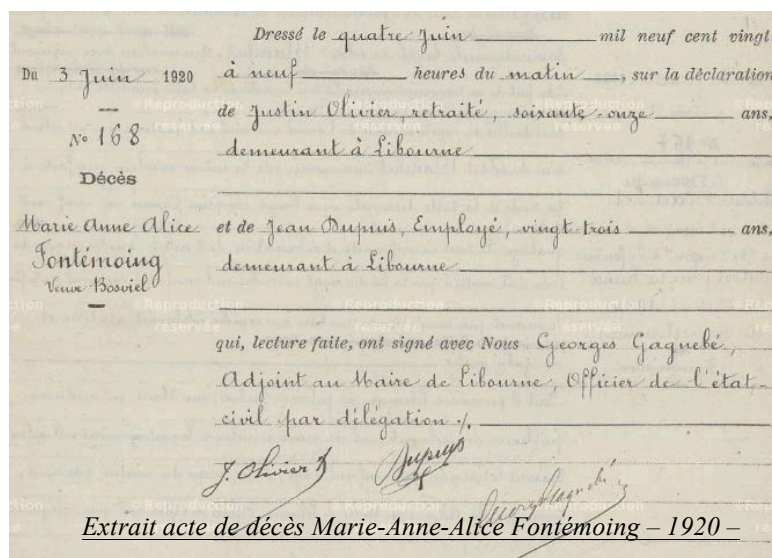 Du 3 Juin 1920
—
No 168
Décès
Marie Anne Alice
Fontémoing
Veuve Bosviel
—
Dressé le quatre Juin mil neuf cent vingt
à neuf heures du matin, sur la déclaration
de Justin Olivier, retraité, soixante-onze ans,
demeurant à Libourne
et de Jean Dupuis, Employé, vingt-trois ans,
demeurant à Libourne
qui, lecture faite, ont signé avec Nous Georges Gagnebé,
Adjoint au Maire de Libourne, Officier de l'état-
civil par délégation ./.
J. Olivier
Dupuis
Georges Gagnebé
Extrait acte de décès Marie-Anne-Alice Fontémoing – 1920 –
©Reproduction
réservée